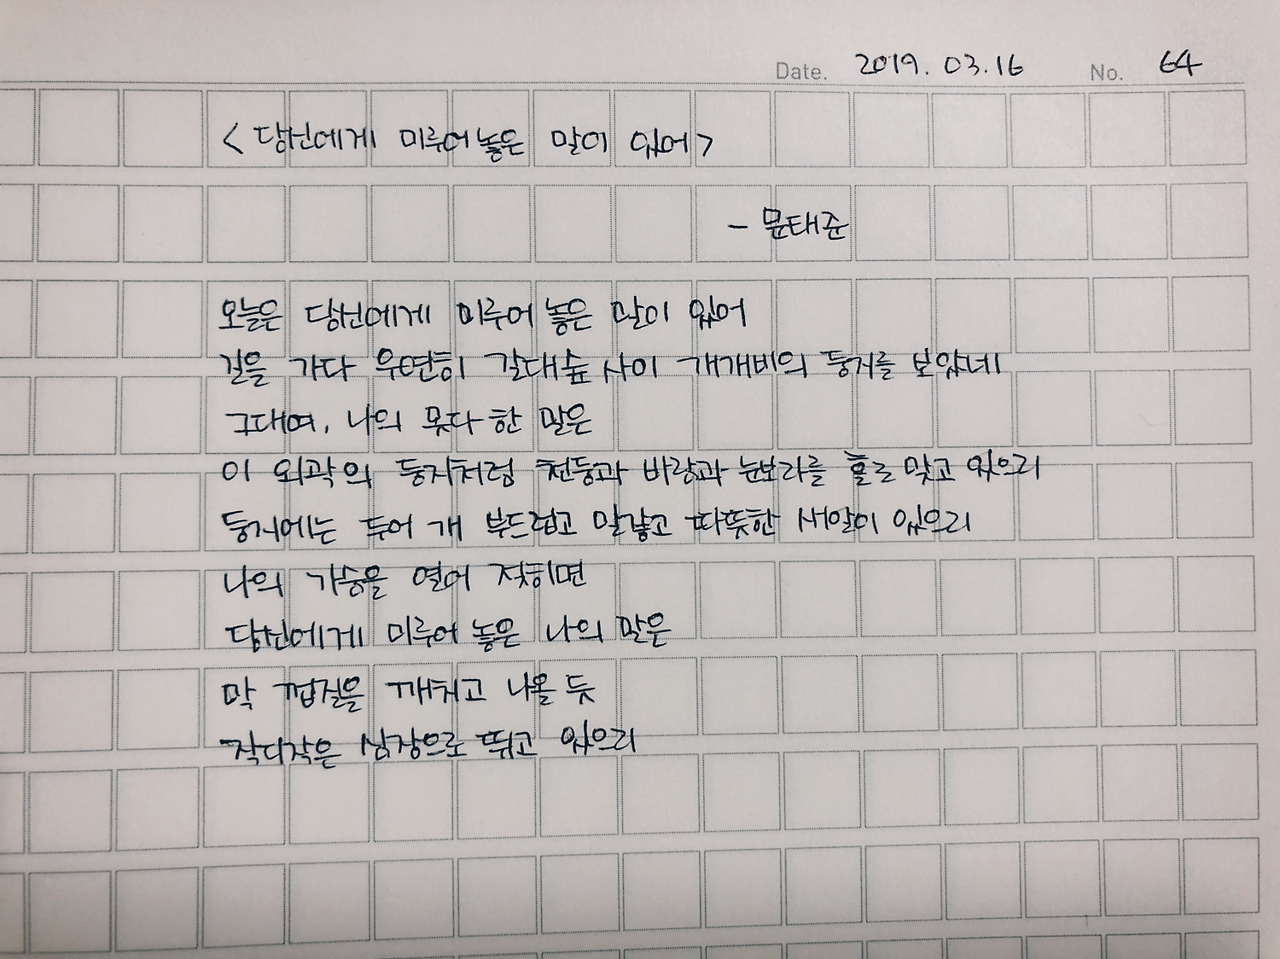 Date. 2019. 03. 16 No. 64
<당신에게 미루어 놓은 말이 있어>
- 문태준
오늘은 당신에게 미루어 놓은 말이 있어
길을 가다 우연히 갈대숲 사이 개개비의 둥지를 보았네
그대여, 나의 못다 한 말은
이 외곽의 둥지처럼 천둥과 바람과 눈보라를 홀로 맞고 있으리
둥지에는 두어 개 부드럽고 말갛고 따뜻한 새알이 있으리
나의 가슴을 열어 젖히면
당신에게 미루어 놓은 나의 말은
막 껍질을 깨치고 나올 듯
작디작은 심장으로 뛰고 있으리